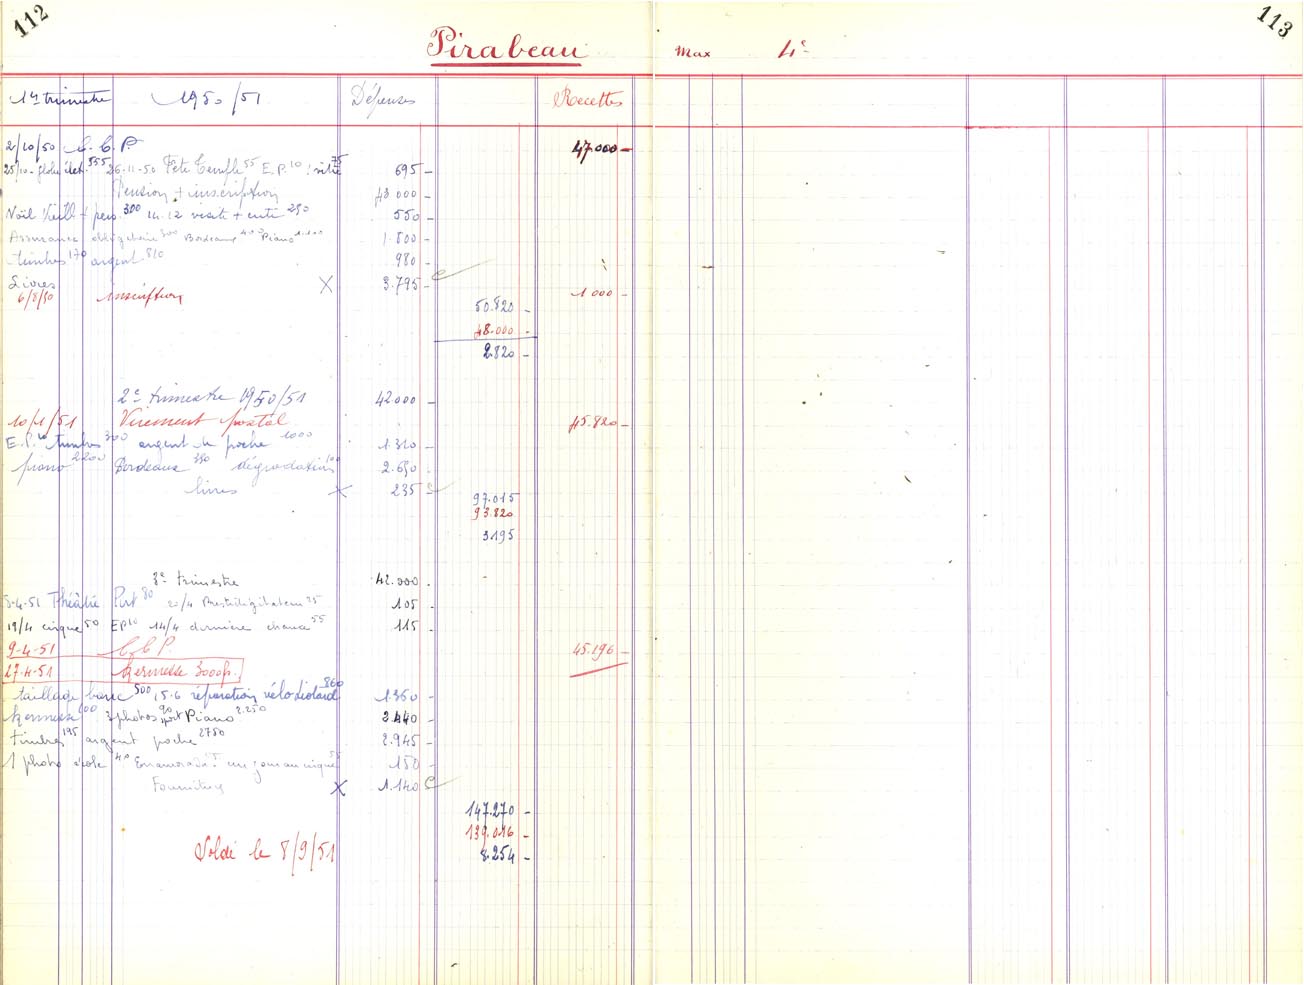 112
113
Pirabeau Max 4e
1er trimestre 1950/51 Dépenses Recettes
2/10/50 C.C.P. 47.000 -
25/10 - globe élect. 355 26-11-50 Fête Temple 55 E.P. 10 : vitre 75 695 -
Pension + inscription 43 000 -
Noël Vieill + pens 300 14.12 visite + cuti 250 550 -
Assurance obligatoire 300 Bordeaux 400 Piano 1.100 1.800 -
timbres 170 argent 810 980 -
Livres X 3.795 -
6/8/50 inscription 1 000 -
50.820 -
48.000 -
2.820 -
2e trimestre 1950/51 42000 -
10/1/51 Virement postal 45.820 -
E.P. 10 timbres 300 argent de poche 1000 1.310 -
piano 2200 Bordeaux 390 dégradations 100 2.690 -
livres X 235 -
97.015
93.820
3195
3e trimestre 42.000 -
5-4-51 Théâtre Port 80 20/4 Prestidigitateur 25 105 -
19/4 cirque 50 EP 10 14/4 dernière chance 55 115
9-4-51 C.C.P. 45.196 -
27-4-51 Kermesse 3000f.
taillade banc 500 15.6 réparation vélo 860 1360 -
kermesse 100 3 photos 90 port Piano 2.250 2.440 -
timbres 195 argent poche 2750 2.945 -
1 photo école 40 un jour au cirque 55 150 -
Fournitures X 1.140
147.270 -
139.016 -
8.254 -
Soldé le 8/9/51